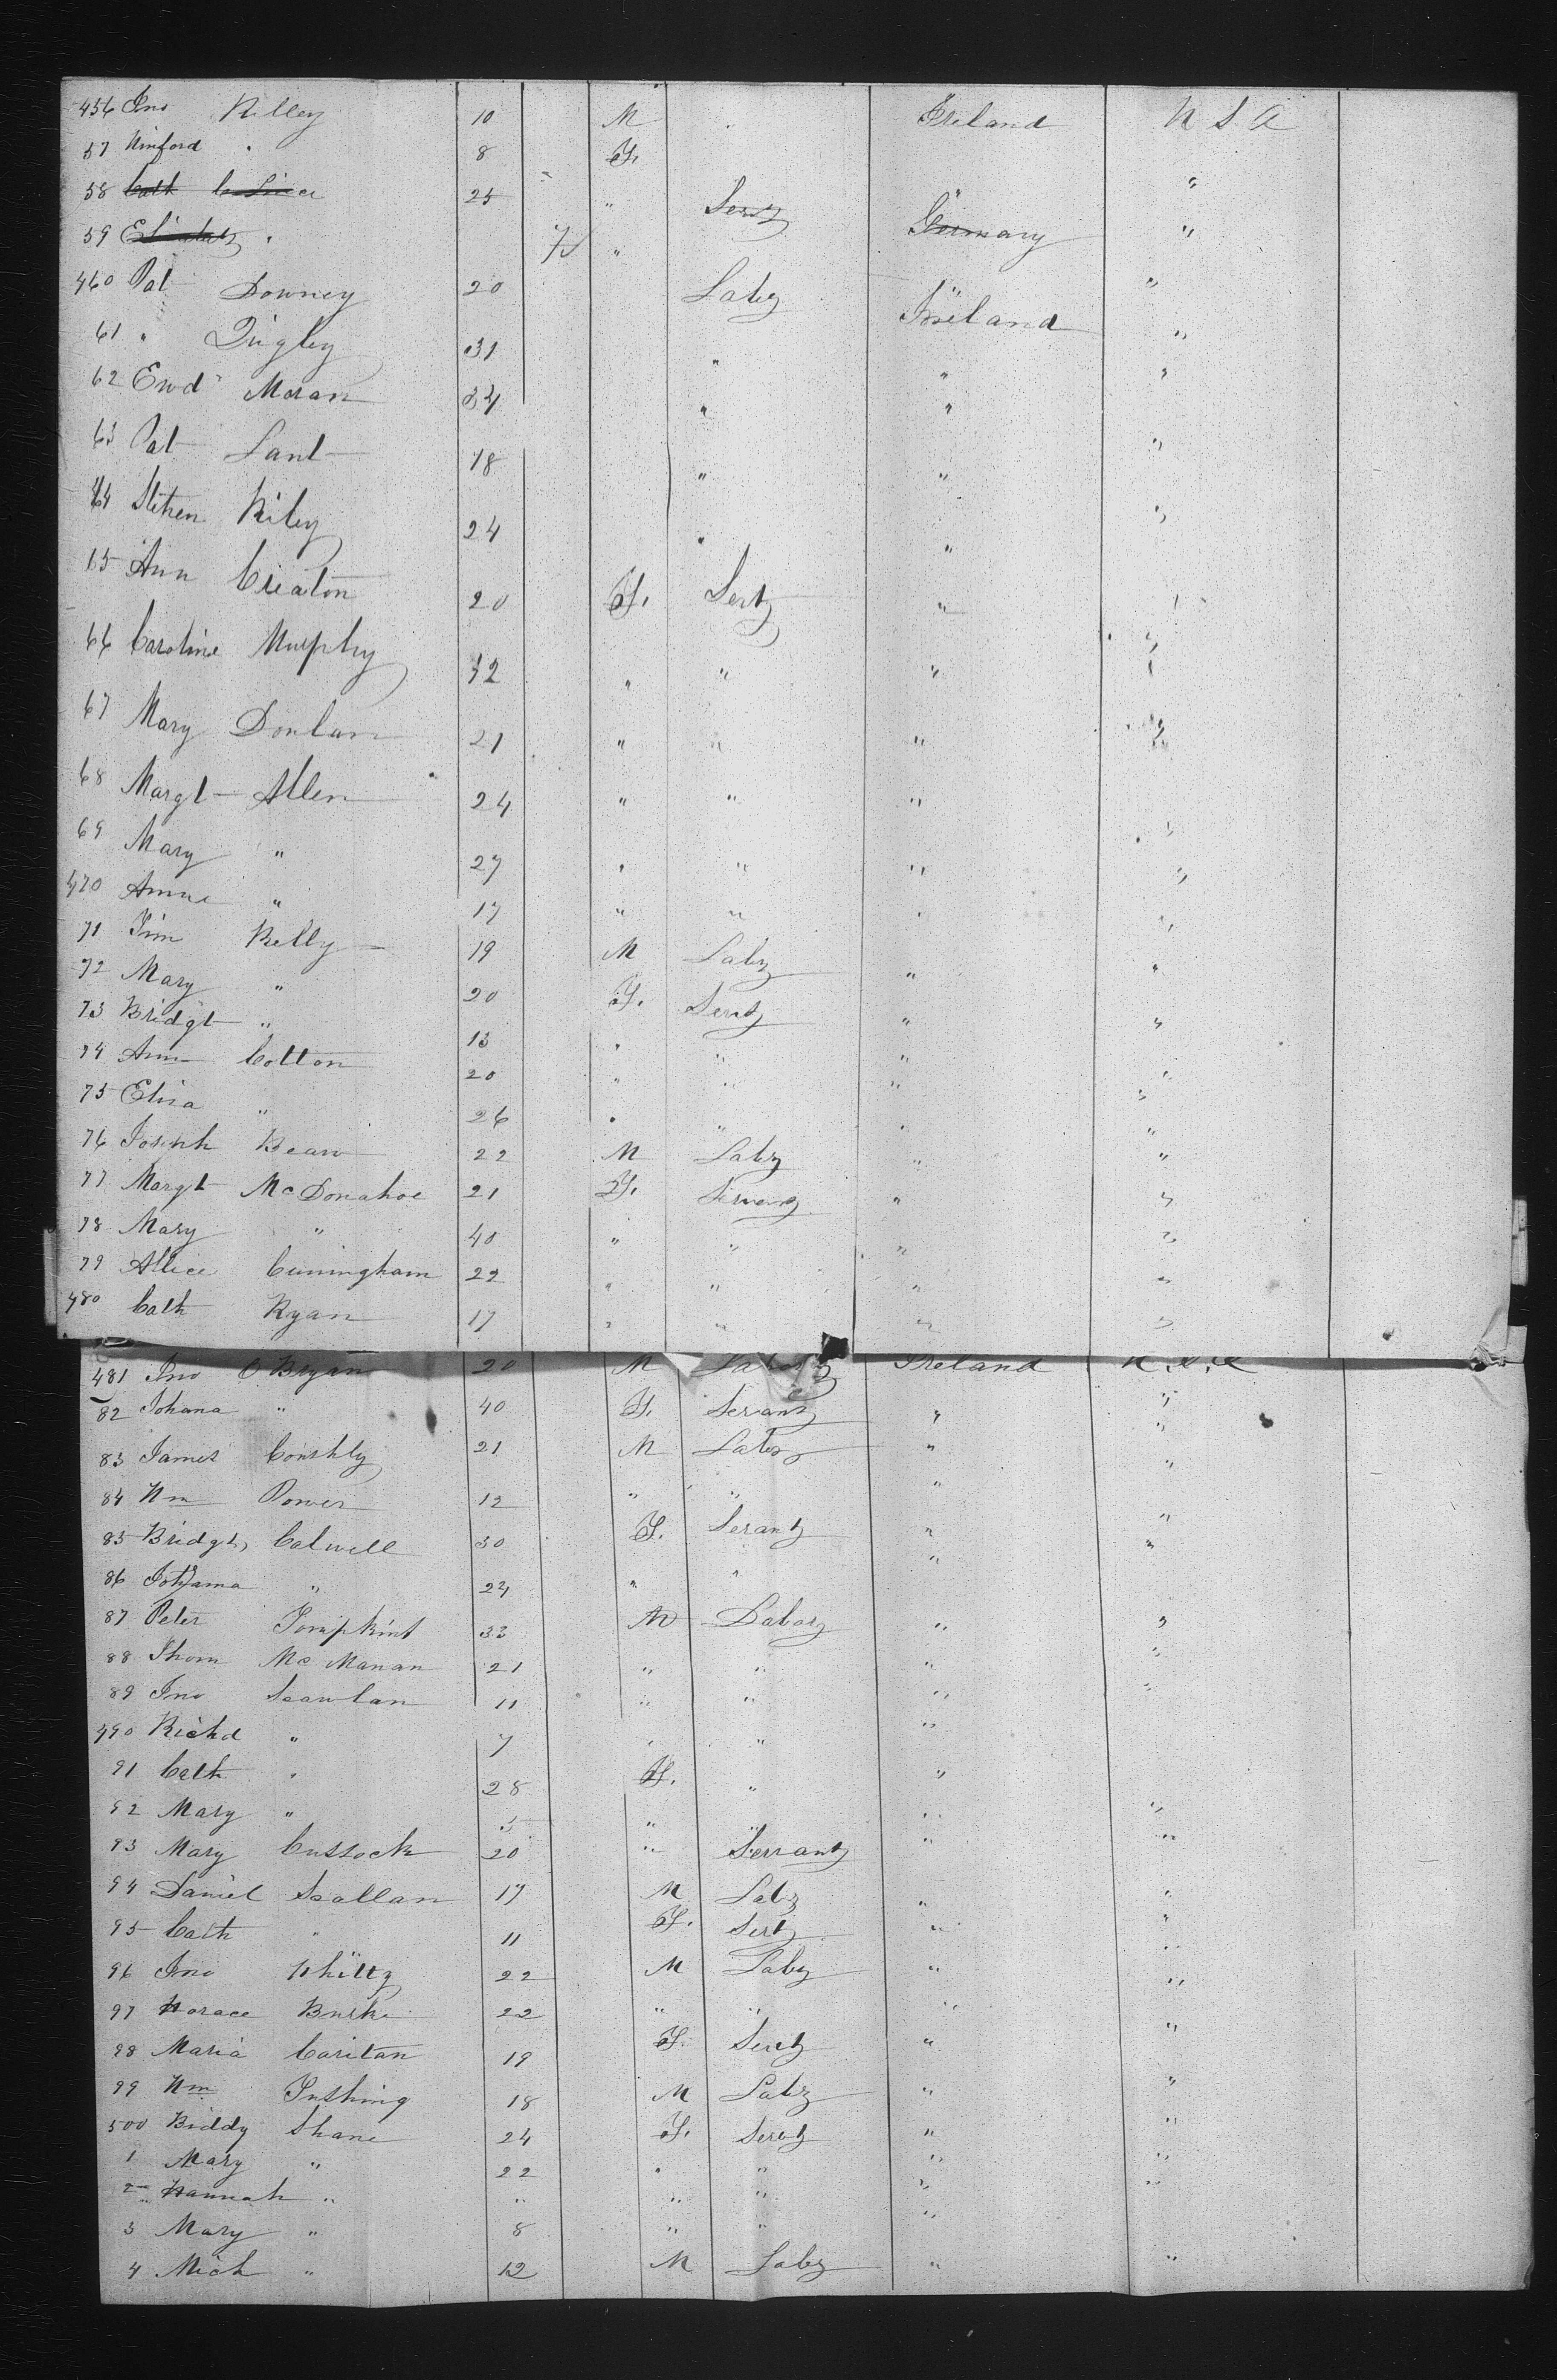 456 Jno Killey 10 M Ireland U S A
57 Winford " 8 F.
58 Cath 25 " Servt "
59 " " Germany "
460 Pat Downey 20 Labr " "
61 " Quigley 31 " Ireland "
62 Ewd Moran 34 " " "
63 Pat Lant 18 " " "
64 Stehen Riley 24 " " "
65 Ann Creaton 20 F. Servt " "
66 Caroline Murphy 32 " " " "
67 Mary Donlan 21 " " " "
68 Margt Allen 24 " " "
69 Mary " 27 " " " "
470 Anne " 17 " " " "
71 Jim Kelly 19 M Labr " "
72 Mary " 20 F. Servt " "
73 Bridgt " 13 " " " "
74 Ann Cotton 20 " " " "
75 Eliza " 26 " " " "
76 Joseph Bean 22 M Labr " "
77 Margt McDonahoe 21 F. Servant " "
78 Mary " 40 " " " "
79 Allice Cuningham 22 " " " "
480 Cath Ryan 17 " " " "
481 Jno O Bryan 20 M Labr Ireland U.S.A
82 Johana " 40 F. Servant " "
83 James 21 M Labr " "
84 Wm Power 12 " " " "
85 Bridgt Calwell 30 F. Serant " "
86 Johana " 24 " " " "
87 Peter Tompkins 33 M Labor " "
88 Thom Mc Manan 21 " " " "
89 Jno Scanlan 11 " " " "
490 Richd " 7 " " "
91 Cath " 28 F. " "
92 Mary " 5 " " " "
93 Mary Cussock 20 " Servant " "
94 Daniel Scallan 17 M Labr " "
95 Cath " 11 F. Servt " "
96 Jno Whitty 22 M Labr " "
97 Horace Burke 22 " " " "
98 Maria Caritan 19 F. Servt " "
99 Wm 18 M Labr " "
500 Biddy Shane 24 F. Servt " "
1 Mary " 22 " " " "
2 Hannah " " " " " "
3 Mary " 8 " " "
4 Mich " 12 M Labr " "